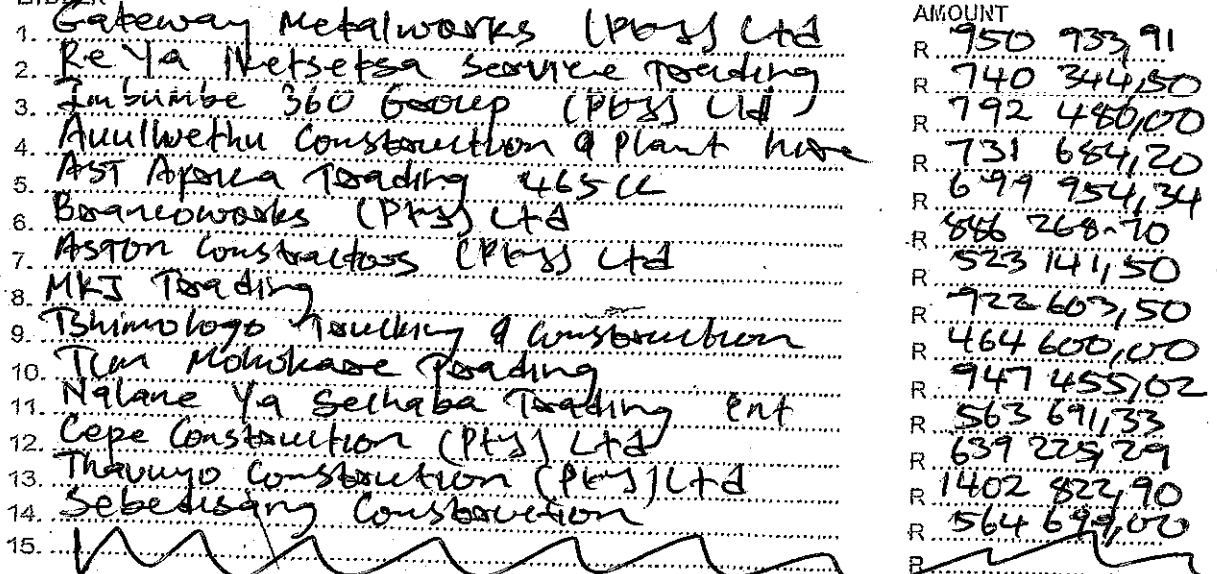 BIDDER AMOUNT
1. Gateway Metalworks (Pty) Ltd R 950 933,91
2. Re Ya Itetsetsa Service Trading R 740 344,50
3. Imbumbe 360 Group (Pty) Ltd R 792 480,00
4. Auulwethu Construction & Plant hire R 731 684,20
5. AST Africa Trading 465 CC R 699 954,34
6. Brancoworks (Pty) Ltd R 886 268-70
7. Aston Constractors (Pty) Ltd R 523 141,50
8. MKJ Trading R 922 603,50
9. Tshimologo Trucking & Construction R 464 600,00
10. TCM Mohokare Trading R 947 455,02
11. Nalane Ya Sechaba Trading Ent R 563 691,33
12. Cepe Construction (Pty) Ltd R 639 225,29
13. Thavuyo Construction (Pty) Ltd R 1402 822,90
14. Sebedisang Construction R 564 699,00
15. R